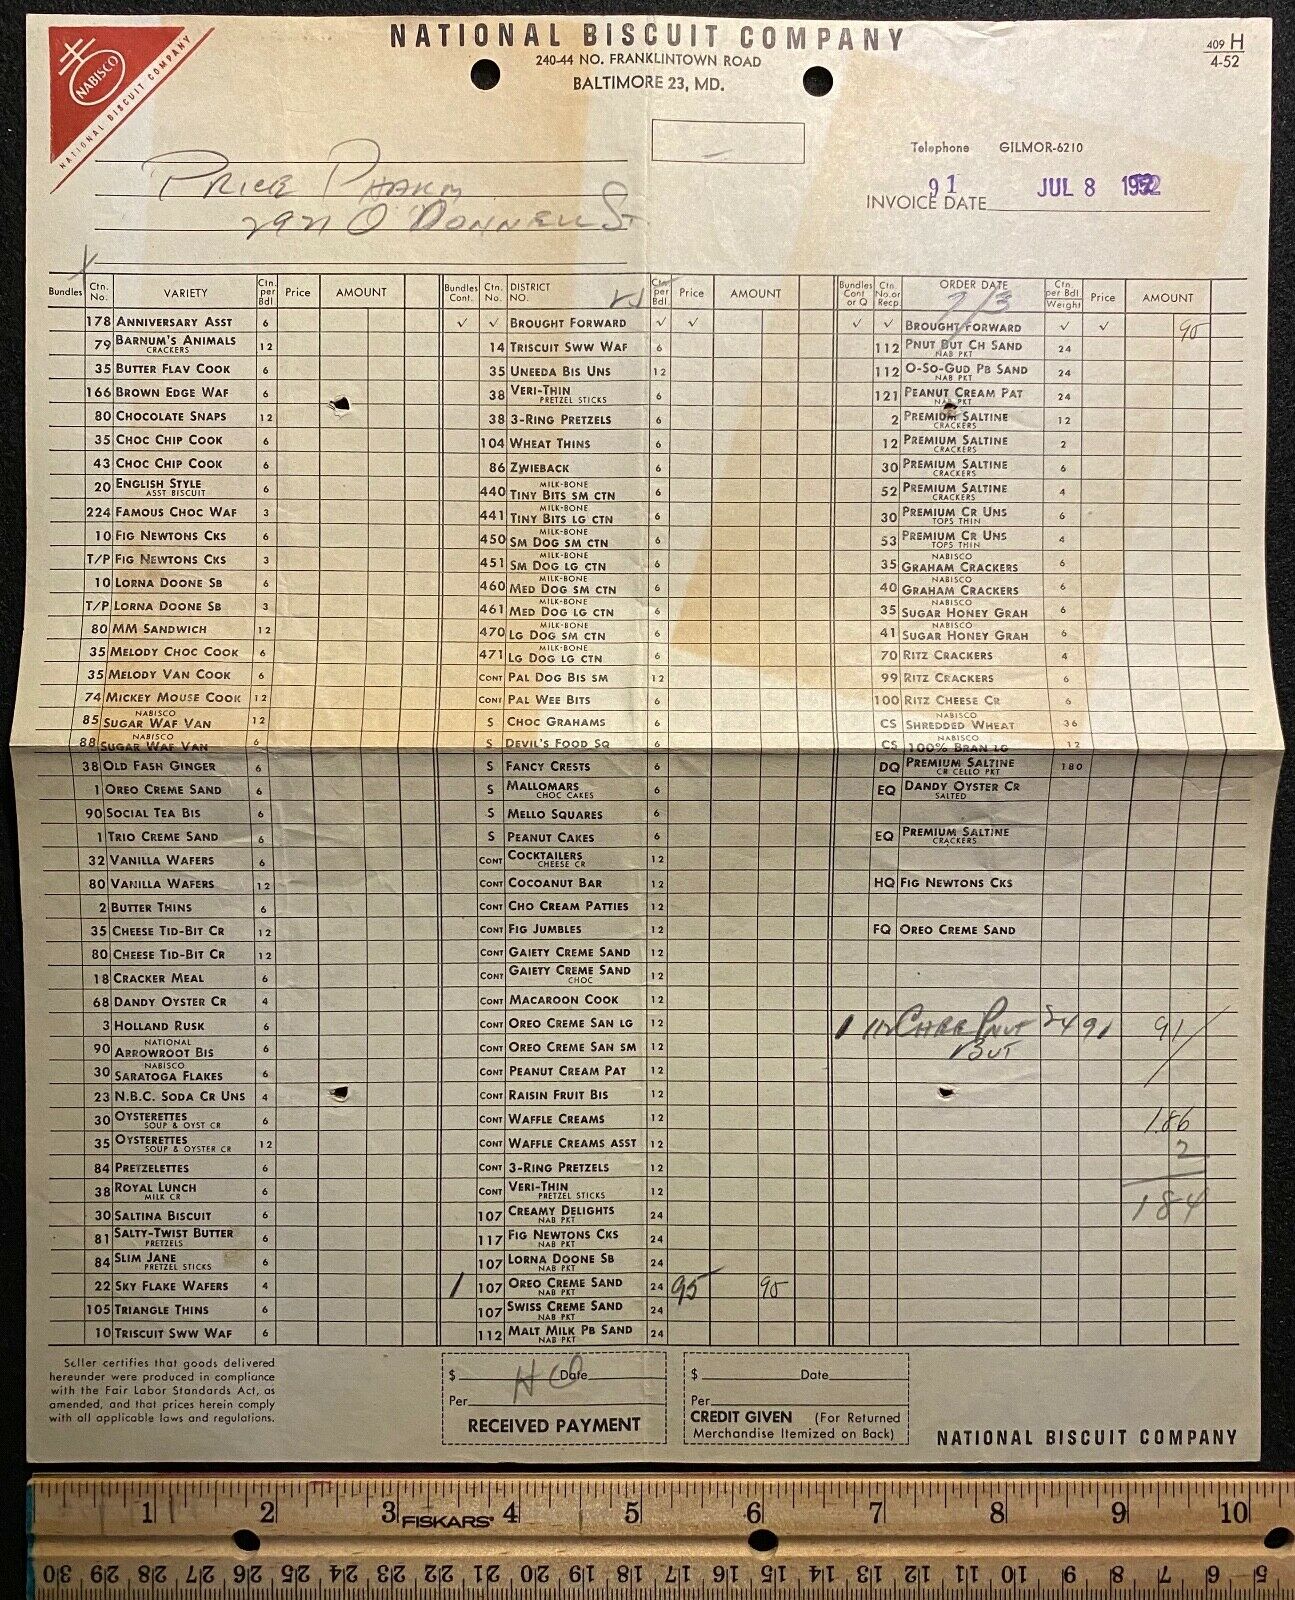 NABISCO
NATIONAL BISCUIT COMPANY
NATIONAL BISCUIT COMPANY
240-44 NO. FRANKLINTOWN ROAD
BALTIMORE 23, MD.
409 H
4-52
Telephone GILMOR-6210
91 JUL 8 1952
INVOICE DATE
PRICE PHARM
2921 O'DONNELL ST.
Bundles Ctn. No. VARIETY Ctn. per Bdl Price AMOUNT
178 ANNIVERSARY ASST 6
79 BARNUM'S ANIMALS CRACKERS 12
35 BUTTER FLAV COOK 6
166 BROWN EDGE WAF 6
80 CHOCOLATE SNAPS 12
35 CHOC CHIP COOK 6
43 CHOC CHIP COOK 6
20 ENGLISH STYLE ASST BISCUIT 6
224 FAMOUS CHOC WAF 3
10 FIG NEWTONS CKS 6
T/P FIG NEWTONS CKS 3
10 LORNA DOONE SB 6
T/P LORNA DOONE SB 3
80 MM SANDWICH 12
35 MELODY CHOC COOK 6
35 MELODY VAN COOK 6
74 MICKEY MOUSE COOK 12
85 NABISCO SUGAR WAF VAN 12
88 NABISCO SUGAR WAF VAN 6
38 OLD FASH GINGER 6
1 OREO CREME SAND 6
90 SOCIAL TEA BIS 6
1 TRIO CREME SAND 6
32 VANILLA WAFERS 6
80 VANILLA WAFERS 12
2 BUTTER THINS 6
35 CHEESE TID-BIT CR 12
80 CHEESE TID-BIT CR 12
18 CRACKER MEAL 6
68 DANDY OYSTER CR 4
3 HOLLAND RUSK 6
90 NATIONAL ARROWROOT BIS 6
30 NABISCO SARATOGA FLAKES 6
23 N.B.C. SODA CR UNS 4
30 OYSTERETTES SOUP & OYST CR 6
35 OYSTERETTES SOUP & OYSTER CR 12
84 PRETZELETTES 6
38 ROYAL LUNCH MILK CR 6
30 SALTINA BISCUIT 6
81 SALTY-TWIST BUTTER PRETZELS 6
84 SLIM JANE PRETZEL STICKS 6
22 SKY FLAKE WAFERS 4
105 TRIANGLE THINS 6
10 TRISCUIT SWW WAF 6
Bundles Cont. Ctn. No. DISTRICT NO. Ctn. per Bdl. Price AMOUNT
✓ ✓ BROUGHT FORWARD ✓ ✓
14 TRISCUIT SWW WAF 6
35 UNEEDA BIS UNS 12
38 VERI-THIN PRETZEL STICKS 6
38 3-RING PRETZELS 6
104 WHEAT THINS 6
86 ZWIEBACK 6
440 MILK-BONE TINY BITS SM CTN 6
441 MILK-BONE TINY BITS LG CTN 6
450 MILK-BONE SM DOG SM CTN 6
451 MILK-BONE SM DOG LG CTN 6
460 MILK-BONE MED DOG SM CTN 6
461 MILK-BONE MED DOG LG CTN 6
470 MILK-BONE LG DOG SM CTN 6
471 MILK-BONE LG DOG LG CTN 6
CONT PAL DOG BIS SM 12
CONT PAL WEE BITS 6
S CHOC GRAHAMS 6
S DEVIL'S FOOD SQ 6
S FANCY CRESTS 6
S MALLOMARS CHOC CAKES 6
S MELLO SQUARES 6
S PEANUT CAKES 6
CONT COCKTAILERS CHEESE CR 12
CONT COCOANUT BAR 12
CONT CHO CREAM PATTIES 12
CONT FIG JUMBLES 12
CONT GAIETY CREME SAND 12
CONT GAIETY CREME SAND CHOC 12
CONT MACAROON COOK 12
CONT OREO CREME SAN LG 12
CONT OREO CREME SAN SM 12
CONT PEANUT CREAM PAT 12
CONT RAISIN FRUIT BIS 12
CONT WAFFLE CREAMS 12
CONT WAFFLE CREAMS ASST 12
CONT 3-RING PRETZELS 12
CONT VERI-THIN PRETZEL STICKS 12
107 CREAMY DELIGHTS NAB PKT 24
117 FIG NEWTONS CKS NAB PKT 24
107 LORNA DOONE SB NAB PKT 24
1 107 OREO CREME SAND NAB PKT 24 95 95
107 SWISS CREME SAND NAB PKT 24
112 MALT MILK PB SAND NAB PKT 24
Bundles Cont or Q Ctn No. or Recp. ORDER DATE Ctn per Bdl Weight Price AMOUNT
7/3
✓ ✓ BROUGHT FORWARD ✓ ✓ 95
112 PNUT BUT CH SAND NAB PKT 24
112 O-SO-GUD PB SAND NAB PKT 24
121 PEANUT CREAM PAT NAB PKT 24
2 PREMIUM SALTINE CRACKERS 12
12 PREMIUM SALTINE CRACKERS 2
30 PREMIUM SALTINE CRACKERS 6
52 PREMIUM SALTINE CRACKERS 4
30 PREMIUM CR UNS TOPS THIN 6
53 PREMIUM CR UNS TOPS THIN 4
35 NABISCO GRAHAM CRACKERS 6
40 NABISCO GRAHAM CRACKERS 6
35 NABISCO SUGAR HONEY GRAH 6
41 NABISCO SUGAR HONEY GRAH 6
70 RITZ CRACKERS 4
99 RITZ CRACKERS 6
100 RITZ CHEESE CR 6
CS NABISCO SHREDDED WHEAT 36
CS NABISCO 100% BRAN LG 12
DQ PREMIUM SALTINE CR CELLO PKT 180
EQ DANDY OYSTER CR SALTED
EQ PREMIUM SALTINE CRACKERS
HQ FIG NEWTONS CKS
FQ OREO CREME SAND
1 112 CHEE PNUT BUT 24 91 91
1.86
2
184
Seller certifies that goods delivered
hereunder were produced in compliance
with the Fair Labor Standards Act, as
amended, and that prices herein comply
with all applicable laws and regulations.
$ Date
Per
RECEIVED PAYMENT
$ Date
Per
CREDIT GIVEN (For Returned
Merchandise Itemized on Back)
NATIONAL BISCUIT COMPANY
1 2 3 FISKARS 4 5 6 7 8 9 10
30 29 28 27 26 25 24 23 22 21 20 19 18 17 16 15 14 13 12 11 10 9 8 7 6 5